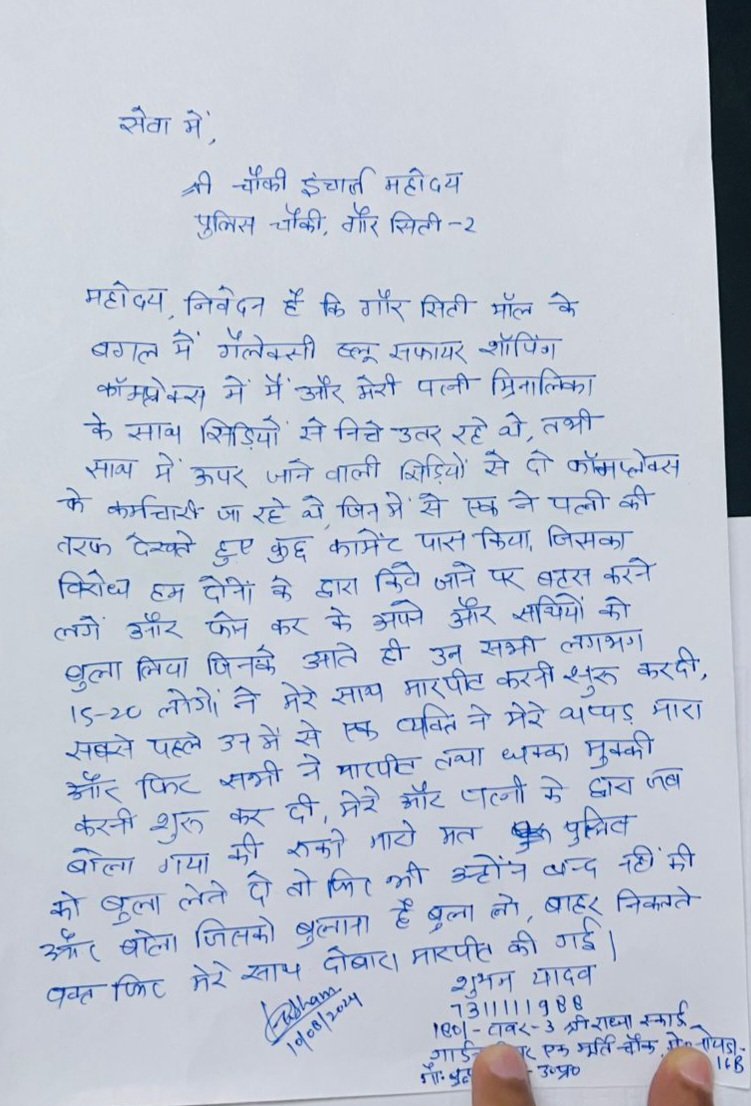 सेवा में,
श्री चौकी इंचार्ज महोदय
पुलिस चौकी, गौर सिटी-२
महोदय, निवेदन है कि गौर सिटी मॉल के
बगल में गैलेक्सी ब्लू सफायर शॉपिंग
कॉम्प्लेक्स में मैं और मेरी पत्नी म्रिनालिका
के साथ सिडियों से निचे उतर रहे थे, तभी
साथ में ऊपर जाने वाली सिडियों से दो कॉम्प्लेक्स
के कर्मचारी जा रहे थे जिन में से एक ने पत्नी की
तरफ देखते हुए कुछ कामेंट पास किया, जिसका
विरोध हम दोनों के द्वारा किये जाने पर बहस करने
लगें और फोन कर के अपने और साथियों को
बुला लिया जिनके आते ही उन सभी लगभग
15-20 लोगों ने मेरे साथ मारपीट करनी शुरू कर दी,
सबसे पहले उन में से एक व्यक्ति ने मेरे थप्पड़ मारा
और फिर सभी ने मारपीट तथा धक्का मुक्की
करनी शुरू कर दी, मेरे और पत्नी के द्वारा जब
बोला गया की रूको मारो मत पुलिस
को बुला लेने दो तो फिर भी उन्होंने बन्द नहीं की
और बोला जिसको बुलाना है बुला लो, बाहर निकलते
वक्त फिर मेरे साथ दोबारा मारपीट की गई।
शुभम यादव
7311111988
Shubham
10/08/2024
1801- टावर-3 श्री राधा स्काई
गार्डन एक मूर्ति चौक,
16B
उ०प्र०